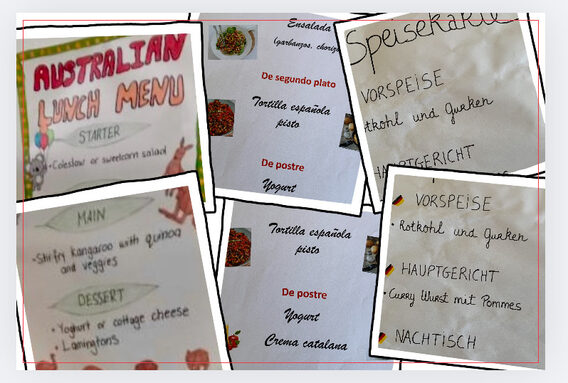 AUSTRALIAN
LUNCH MENU
STARTER
• Coleslaw or sweetcorn salad
Ensalada
(garbanzos, chorizo
De segundo plato
Tortilla española
pisto
De postre
Yogurt
Speisekarte
VORSPEISE
Rotkohl und Gurken
HAUPTGERICHT
MAIN
- Stirfry kangaroo with quinoa
and veggies
DESSERT
• Yogurt or cottage cheese
• Lamingtons
Tortilla española
pisto
De postre
Yogurt
Crema catalana
VORSPEISE
• Rotkohl und Gurken
HAUPTGERICHT
• Curry Wurst mit Pommes
NACHTISCH